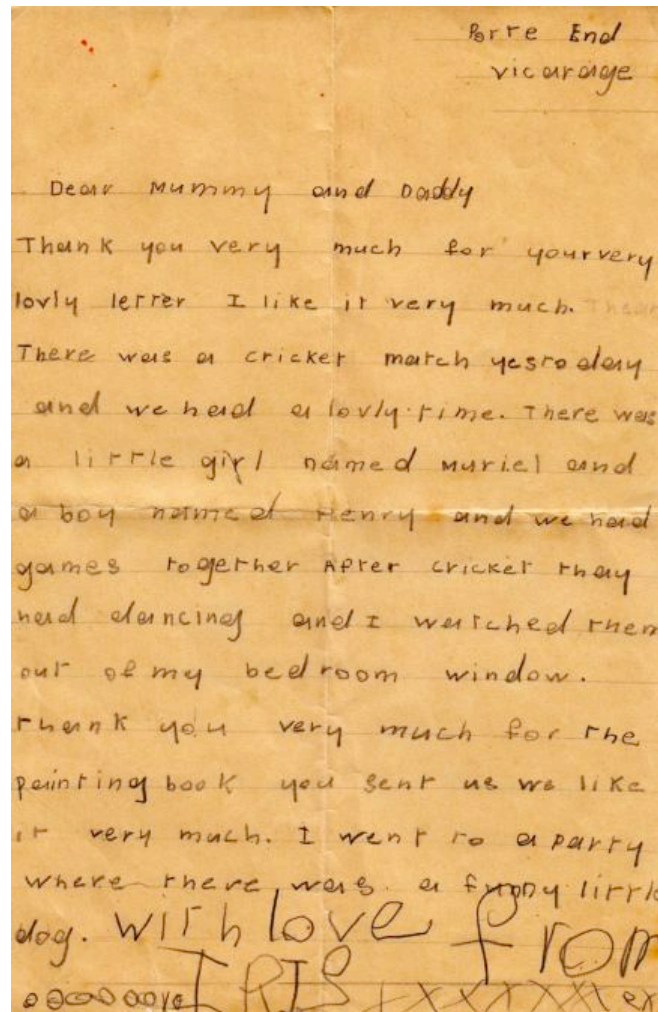 Potte End
vicarage
Dear Mummy and Daddy
Thank you very much for your very
lovly letter I like it very much.
There was a cricket match yestoday
and we had a lovly time. There was
a little girl named Muriel and
a boy named Henry and we had
games together After cricket thay
had dancing and I watched them
out of my bedroom window.
thank you very much for the
painting book you sent us we like
it very much. I went to a party
where there was a funny little
dog. with love from
IRIS